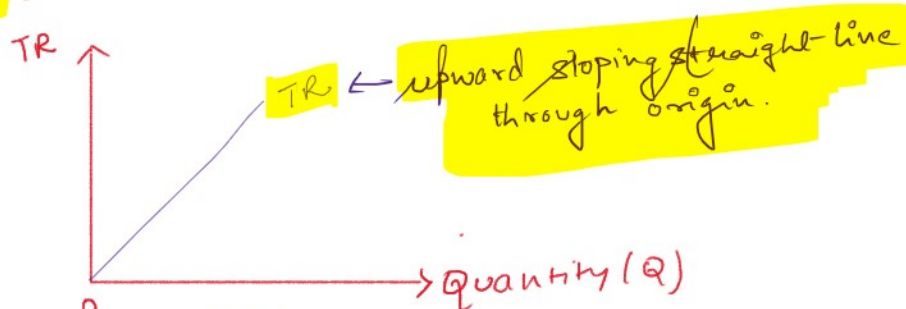 TR
TR ← upward sloping straight-line
through origin.
Quantity (Q)
0